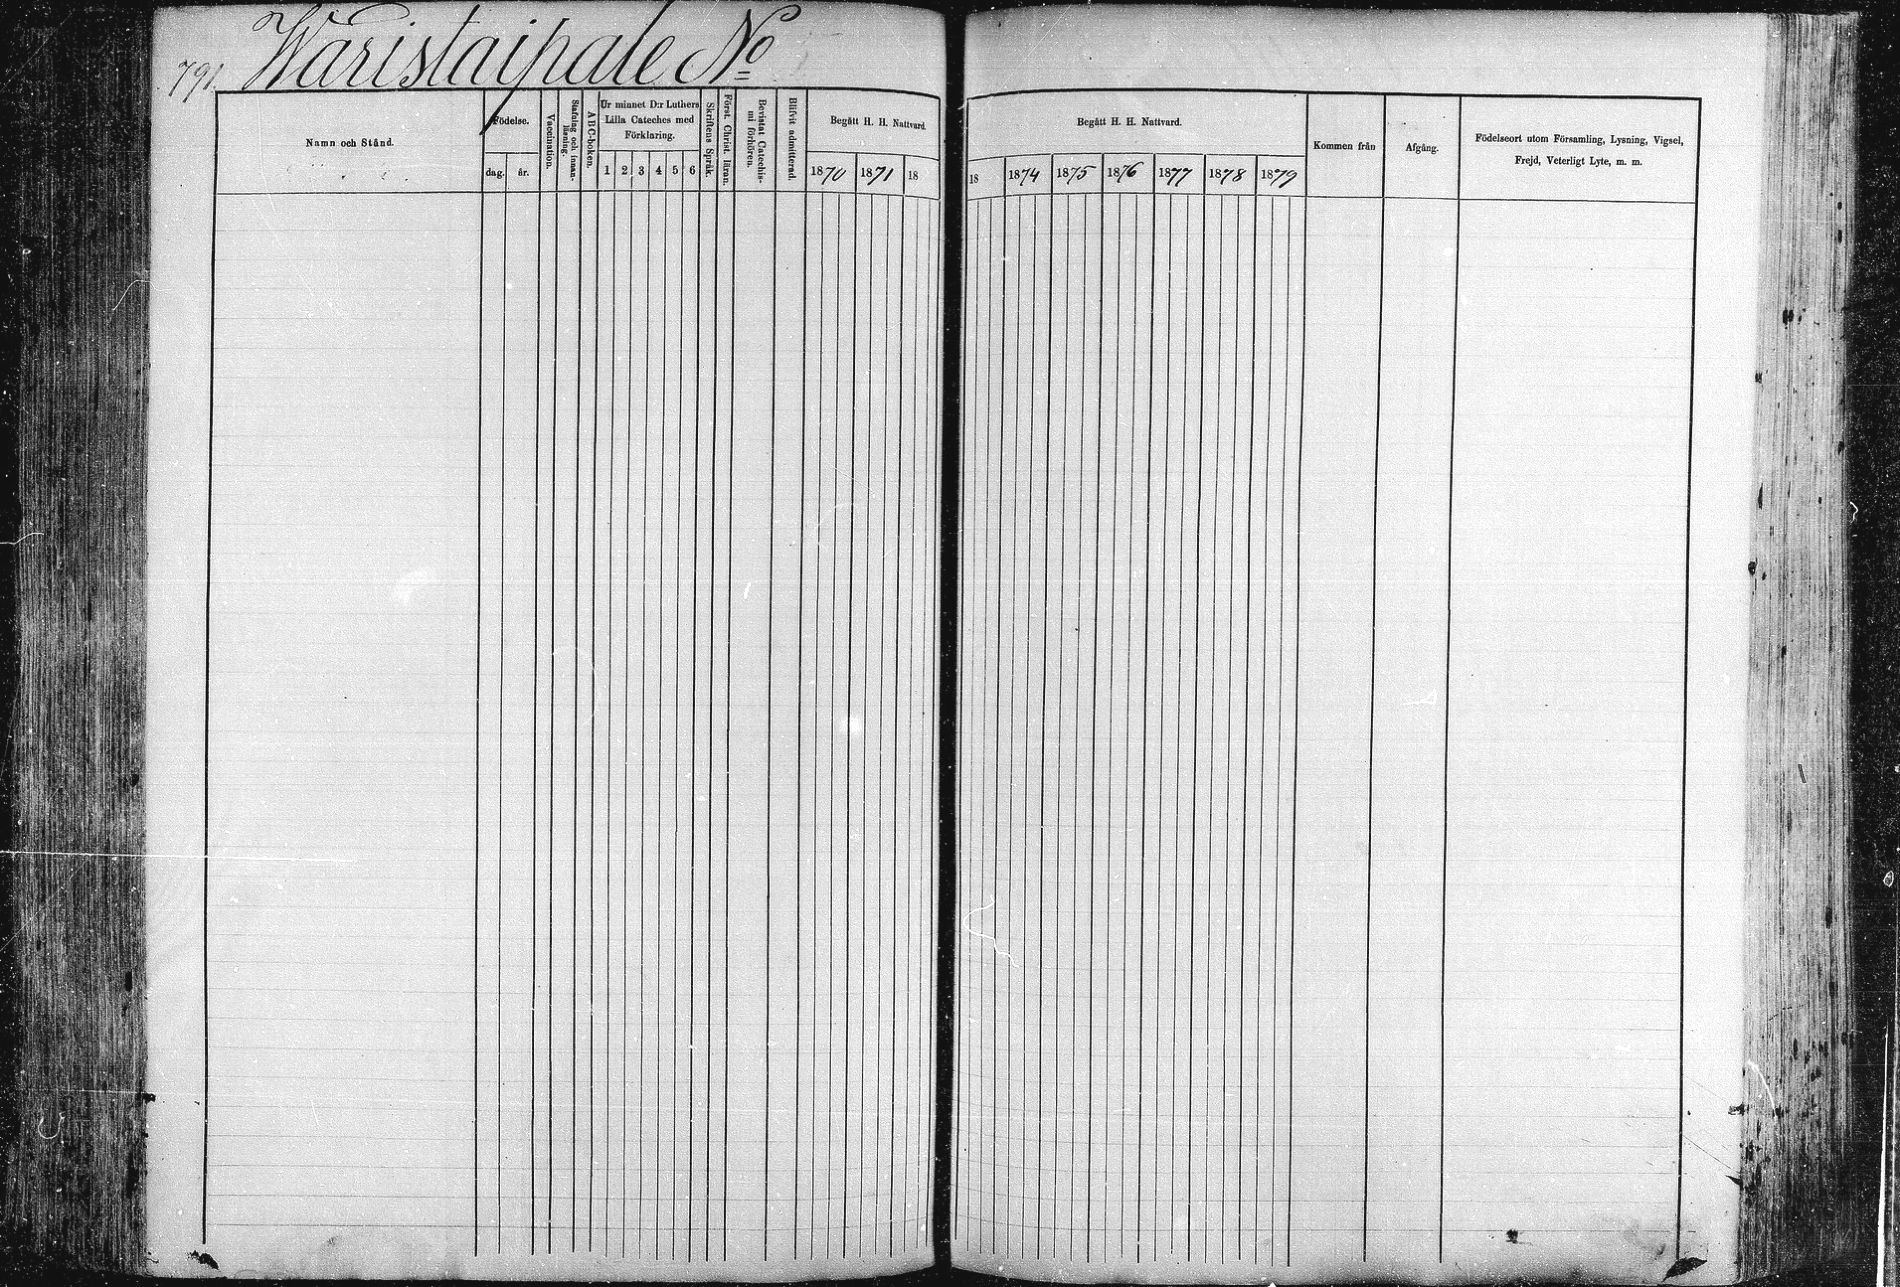 791. Waristaipale No
Namn och Stånd.
Födelse.
dag.
år.
Vaccination.
Stafning och innan-
läsning.
ABC-boken.
Ur minnet D:r Luthers
Lilla Cateches med
Förklaring.
1 2 3 4 5 6
Skriftens Språk.
Först. Christ. läran.
Bevistat Catechis-
mi förhören.
Blifvit admitterad.
Begått H. H. Nattvard.
1870 1871 18
Begått H. H. Nattvard.
18 1874 1875 1876 1877 1878 1879
Kommen från
Afgång.
Födelseort utom Församling, Lysning, Vigsel,
Frejd, Veterligt Lyte, m. m.